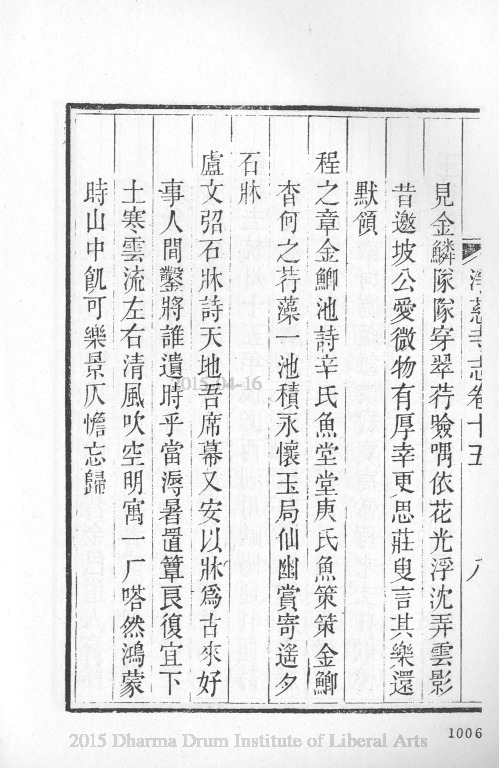 淨慈寺志卷十五 八
見金鱗隊隊穿翠荇噞喁依花光浮沈弄雲影
昔邀坡公愛微物有厚幸更思莊叟言其樂還
默領
程之章金鯽池詩辛氏魚堂堂庚氏魚策策金鯽
杳何之荇藻一池積永懷玉局仙幽賞寄遙夕
石牀
盧文弨石牀詩天地吾席幕又安以牀爲古來好
事人間鑿將誰遺時乎當溽暑置簟良復宜下
土寒雲流左右清風吹空明寓一厂嗒然鴻蒙
時山中飢可樂景仄憺忘歸
2015-04-16
1006
2015 Dharma Drum Institute of Liberal Arts